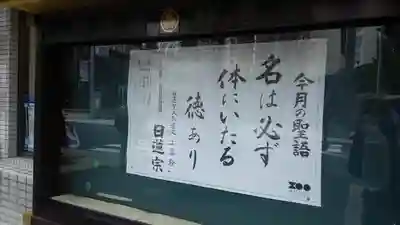 今月の聖語
名は必ず
体にいたる
徳あり
日蓮宗